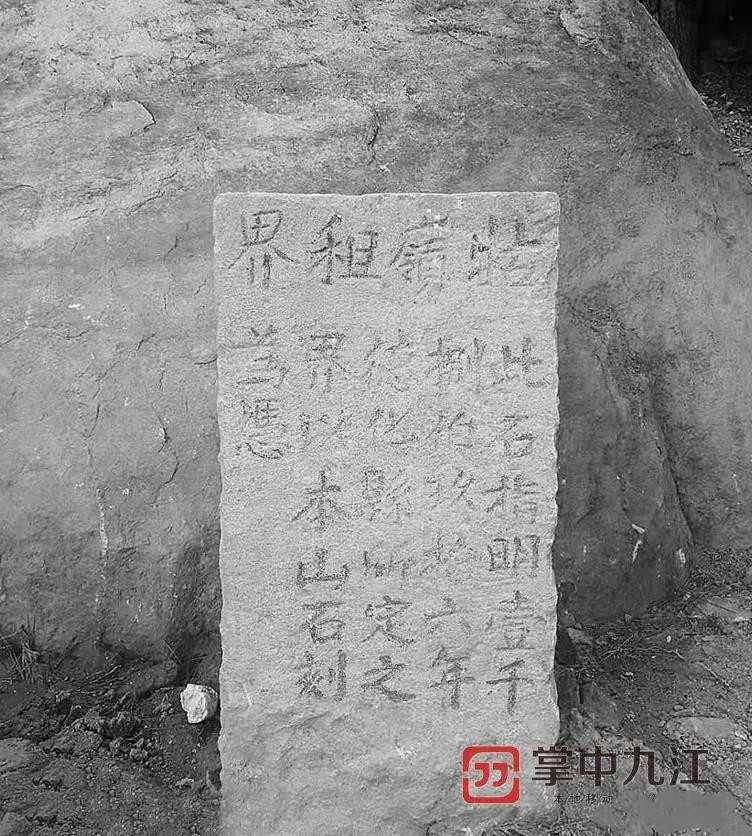 牯嶺租界
此石指明壹千
捌佰玖拾六年
德化縣所定之
界以本山石刻
為憑
掌中九江
本地移动